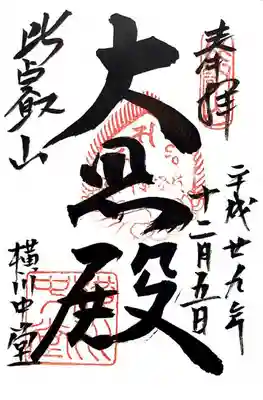 奉拝
平成廿九年
十二月五日
大悲殿
比叡山
横川中堂